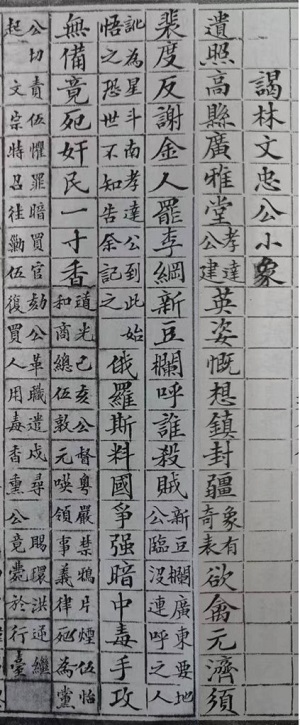 謁林文忠公小象
遺照高縣廣雅堂孝達公建英姿慨想鎮封疆象有奇表欲禽元濟須
裴度反謝金人罷李綱新豆欄呼誰殺賊新豆欄廣東要地公臨沒連呼之人
訛為星斗南孝達公到此始悟之恐世不知告余記之俄羅斯料國爭强暗中毒手攻
無備竟死奸民一寸香道光己亥公督粤嚴禁鴉片煙伍怡和商總伍敦元𠸄領事義律死為黨
公切責伍懼罪暗買官劾公革職遣戍尋賜環洪逆繼起文宗特召往勦伍復買人用毒香熏公竟薨於行臺